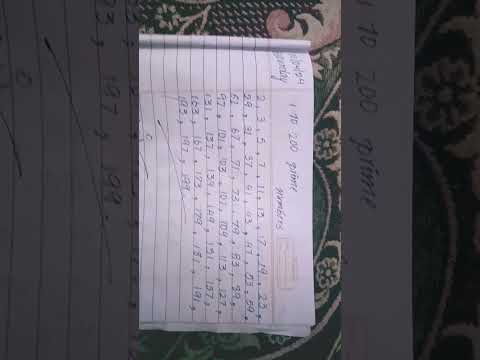 1 TO 200 prime numbers
2, 3, 5, 7, 11, 13, 17, 19, 23,
29, 31, 37, 41, 43, 47, 53, 59,
61, 67, 71, 73, 79, 83, 89,
97, 101, 103, 107, 109, 113, 127,
131, 137, 139, 149, 151, 157,
163, 167, 173, 179, 181, 191,
193, 197, 199.
1 TO 200 prime
197, 199.